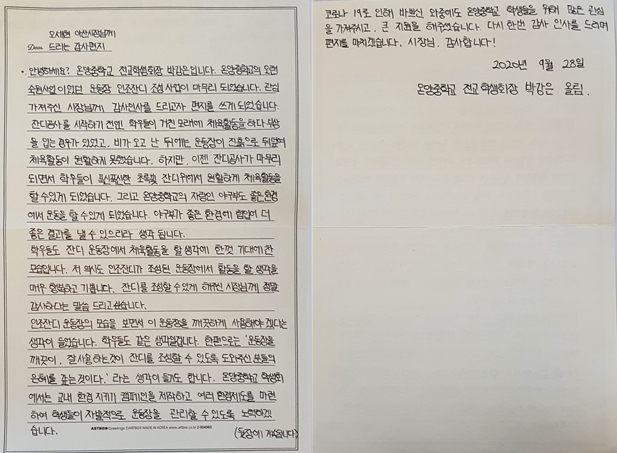 오세현 아산시장님께
Dear. 드리는 감사편지
• 안녕하세요? 온양중학교 전교학생회장 박강은입니다. 온양중학교의 오랜
숙원사업이었던 운동장 인조잔디 조성 사업이 마무리 되었습니다. 관심
가져주신 시장님께 감사인사를 드리고자 편지를 쓰게 되었습니다.
잔디공사를 시작하기 전엔, 학우들이 거친 모래에 체육활동을 하다 부상
을 입는 경우가 있었고, 비가 오고 난 뒤에는 운동장이 진흙으로 뒤덮여
체육활동이 원활하게 못했습니다. 하지만, 이젠 잔디공사가 마무리
되면서 학우들이 푹신푹신한 초록빛 잔디위에서 원활하게 체육활동을
할 수 있게 되었습니다. 그리고 온양중학교의 자랑인 야구부도 좋은 환경
에서 운동을 할 수 있게 되었습니다. 야구부가 좋은 환경에 힘입어 더
좋은 결과를 낼 수 있으리라 생각 됩니다.
학우들도 잔디 운동장에서 체육활동을 할 생각에 한껏 기대에 찬
모습입니다. 저 역시도 인조잔디가 조성된 운동장에서 활동을 할 생각을
매우 행복하고 기쁩니다. 잔디를 조성할 수 있게 하주신 시장님께 정말
감사하다는 말씀 드리고 싶습니다.
인조잔디 운동장의 모습을 보면서 이 운동장을 깨끗하게 사용해야 겠다는
생각이 들었습니다. 학우들도 같은 생각일겁니다. 한편으로는 '운동장을
깨끗이, 잘 사용하는것이 잔디를 조성할 수 있도록 도와주신 분들의
은혜를 갚는것이다.' 라는 생각이 들기도 합니다. 온양중학교 학생회
에서는 교내 환경 지키기 캠페인을 제작하고 여러 환경제도를 마련
하여 학생들이 자발적으로 운동장을 관리할 수 있도록 노력하겠
습니다.
ARTBOX Greetings ©ARTBOX MADE IN KOREA www.artbox.co.kr
(뒷장에 계속됩니다)
코로나 19로 인해 바쁘신 와중에도 온양중학교 학생들을 위해 많은 관심
을 가져주시고, 큰 지원을 해주셨습니다. 다시 한번 감사 인사를 드리며
편지를 마치겠습니다. 시장님, 감사합니다!
2020년 9월 28일
온양중학교 전교 학생회장 박강은 올림.